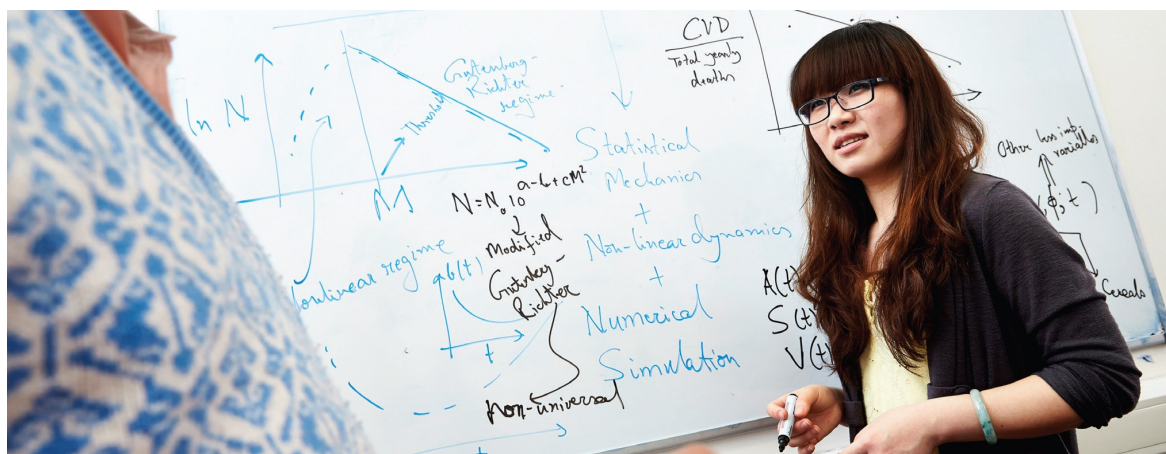 ln N
Threshold
M
Gutenberg-
Richter
regime.
Nonlinear regime
N=N₀10^a-b+cM²
Modified
Gutenberg-
Richter
non-universal
b(t)
t
t
Statistical
Mechanics
+
Non-linear dynamics
+
Numerical
Simulation
CVD
Total yearly
deaths
Other less imp.
variables
, φ; t)
Cereals
A(t)
S(t)
V(t)